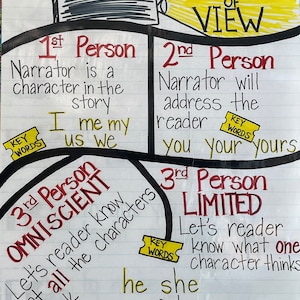 OF
VIEW
1st Person
Narrator is a
character in the
story
KEY
WORDS
I me my
us we
2nd Person
Narrator will
address the
reader
KEY
WORDS
you your yours
3rd Person
OMNISCIENT
Let's reader know
all the characters
3rd Person
LIMITED
Let's reader
know what one
character thinks
KEY
WORDS
he she